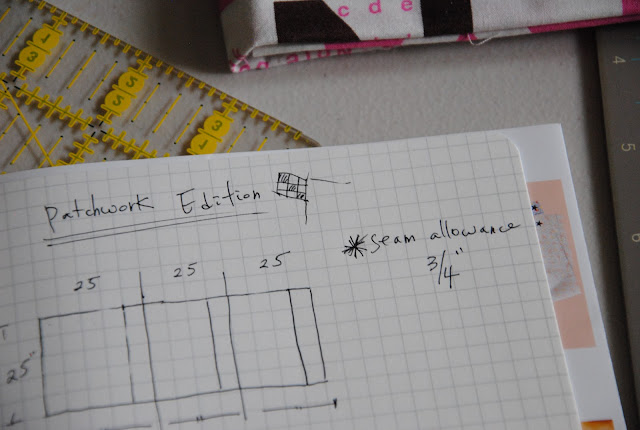 c d e
4
5
6
Patchwork Edition
* seam allowance
3/4"
25 25 25
25"